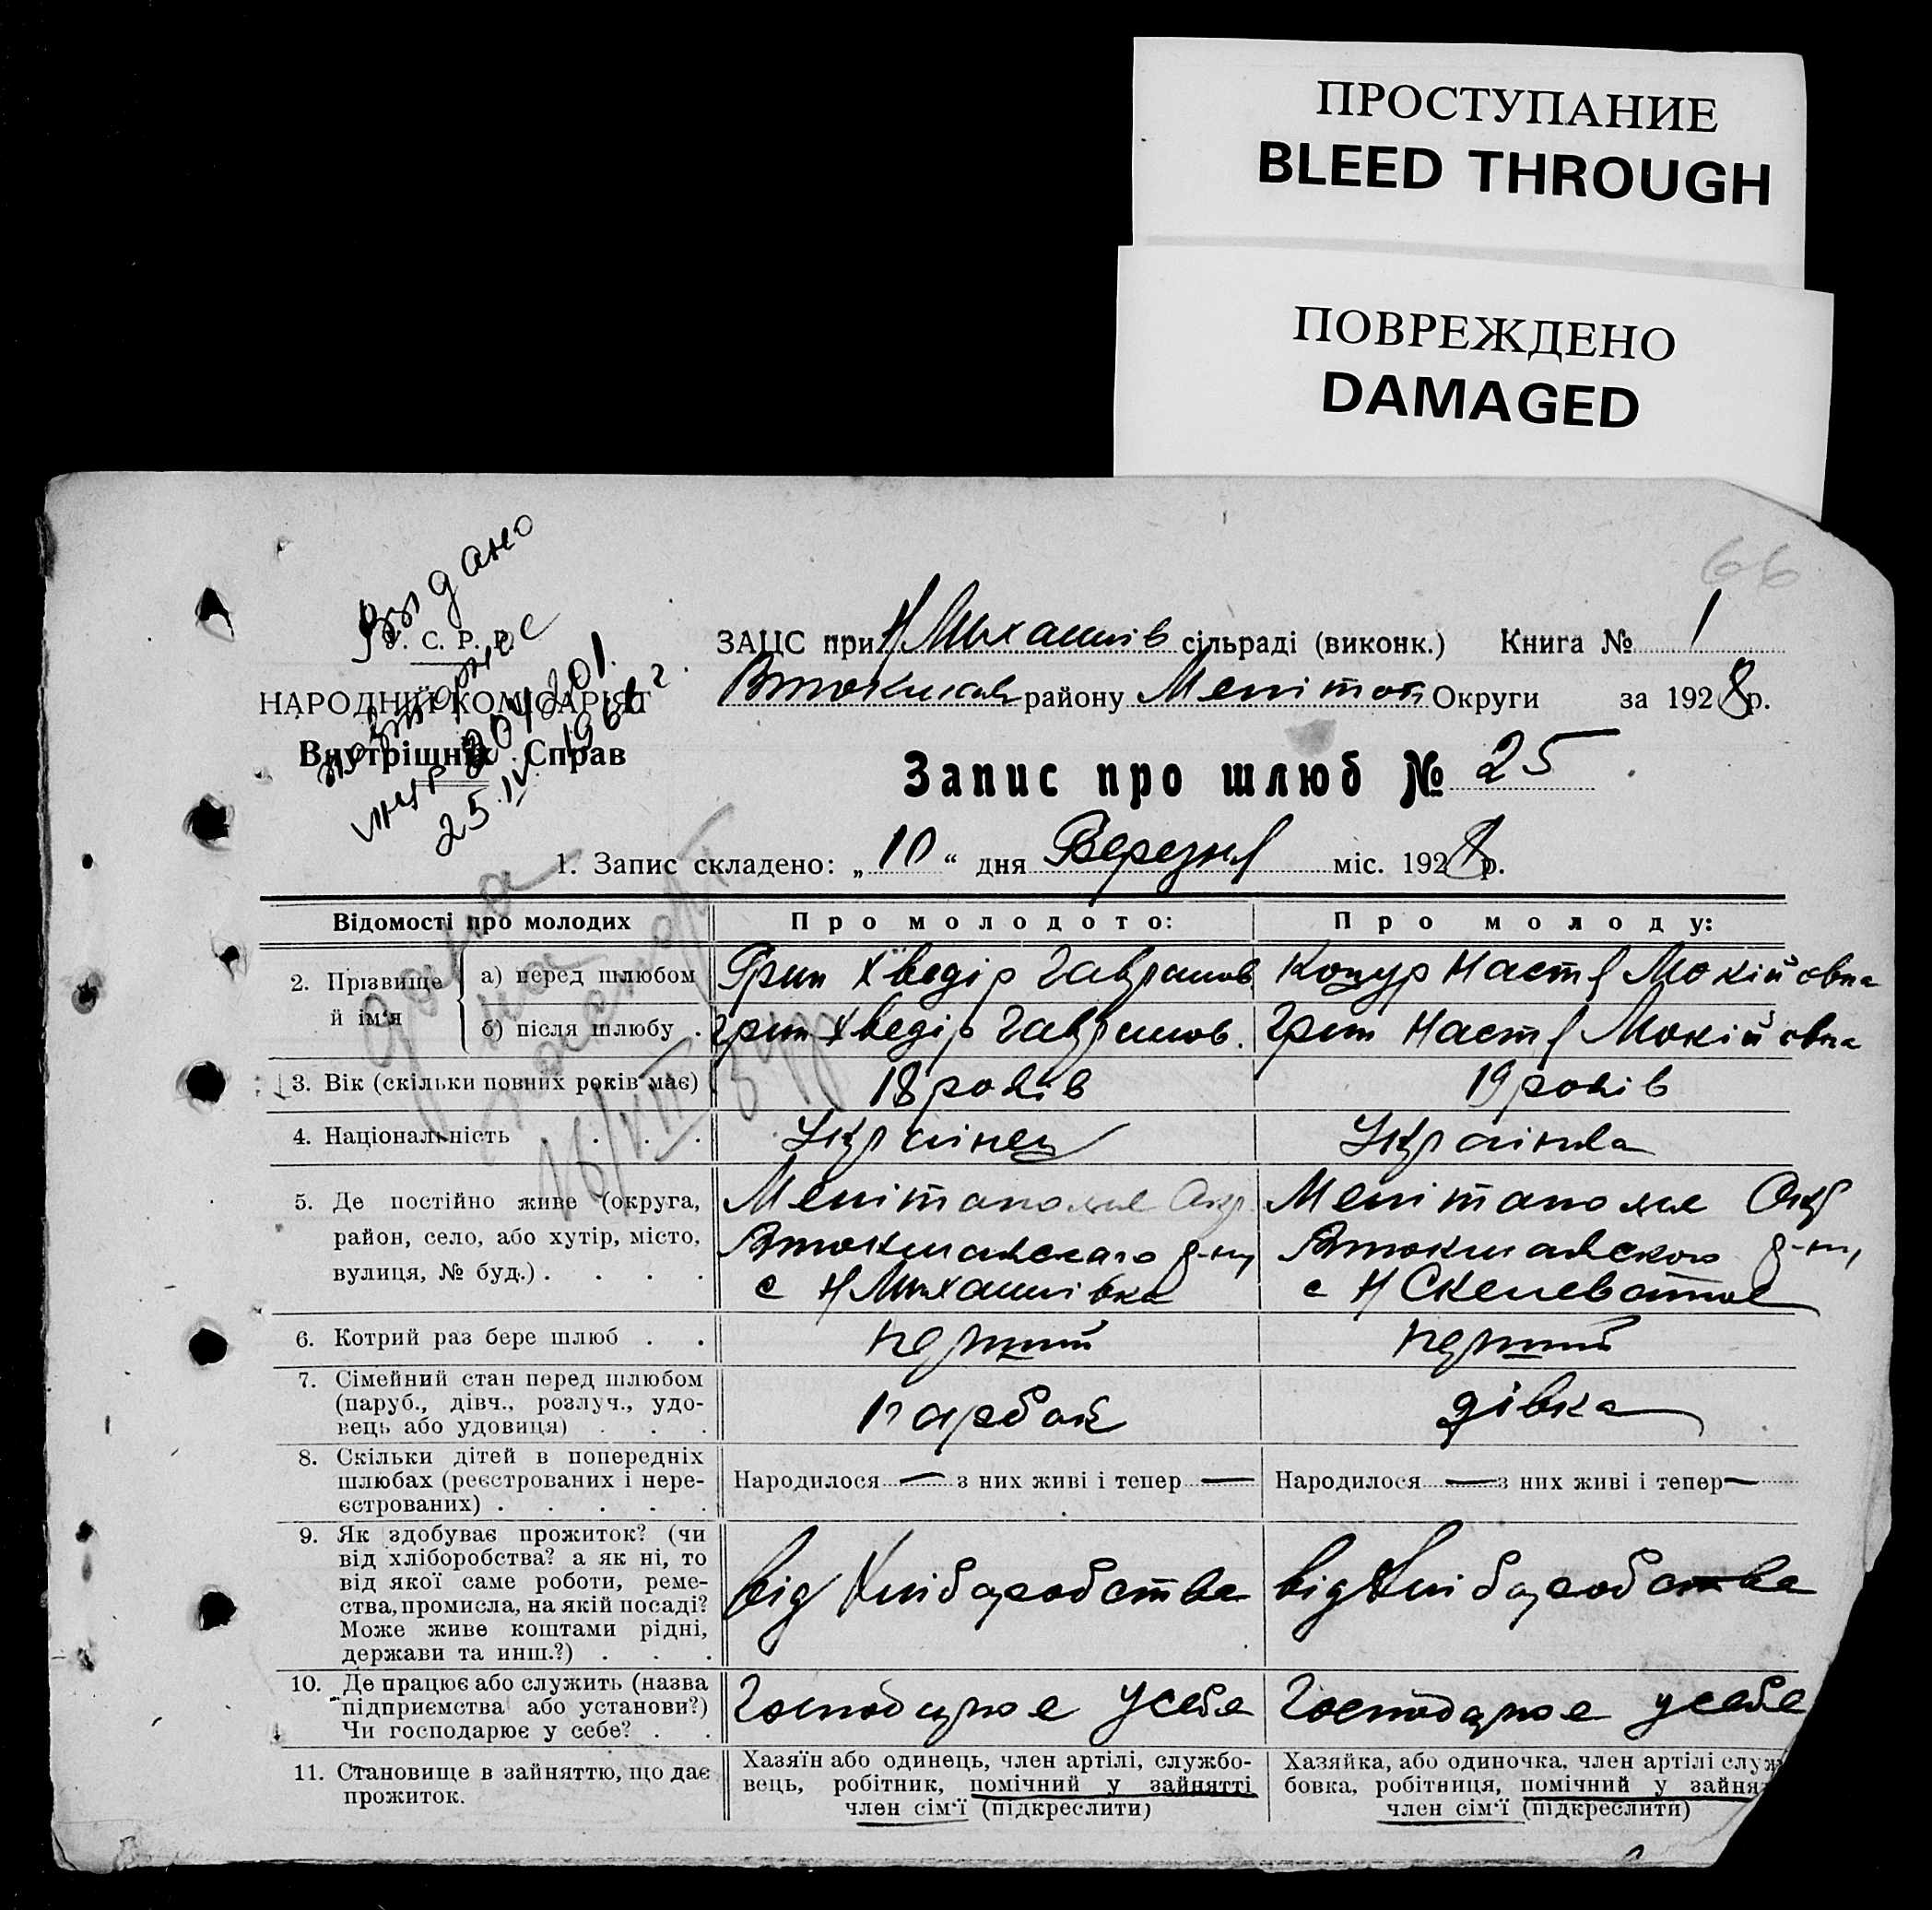 ПРОСТУПАНИЕ
BLEED THROUGH
ПОВРЕЖДЕНО
DAMAGED
66
Выдано
повторное
204201.
25.IV.196 г.
У. С. Р. Р.
НАРОДНИЙ КОМІСАРІЯТ
Внутрішніх Справ
ЗАЦС при Н Михайлів сільраді (виконк.) Книга № 1
району Меліт Округи за 1928 р.
Запис про шлюб № 25
1. Запис складено: „ 10 “ дня Березня міс. 1928 р.
Відомості про молодих Про молодого: Про молоду:
2. Прізвище й ім‘я
а) перед шлюбом Грип Хведір Гаврилов Коцур Настя Мокійовна
б) після шлюбу . Грип Хведір Гаврилов. Грип Настя Мокійовна
3. Вік (скільки повних років має) 18 років 19 років
4. Національність . . . Українец Українка
5. Де постійно живе (округа, Мелітополе Окр Мелітополе Окр
район, село, або хутір, місто, р-ну р-ну
вулиця, № буд.) . . . . с Н Михайлівка с Н Скелеватое
6. Котрий раз бере шлюб . . перший перший
7. Сімейний стан перед шлюбом
(паруб., дівч., розлуч., удо- парубок дівка
вець або удовиця) . . .
8. Скільки дітей в попередніх
шлюбах (реєстрованих і нере- Народилося — з них живі і тепер — Народилося — з них живі і тепер —
єстрованих) . . . . .
9. Як здобуває прожиток? (чи
від хліборобства? а як ні, то
від якої саме роботи, реме- від Хліборобства від Хліборобства
ства, промисла, на якій посаді?
Може живе коштами рідні,
держави та инш.?) . . .
10. Де працює або служить (назва
підприємства або установи?) Господарює у себе Господарює у себе
Чи господарює у себе? . .
11. Становище в зайняттю, що дає Хазяїн або одинець, член артілі, службо- Хазяйка, або одиночка, член артілі служ
прожиток. вець, робітник, помічний у зайнятті бовка, робітниця, помічний у зайня
член сім‘ї (підкреслити) член сім‘ї (підкреслити)
дана
на
паспорт
16/VII